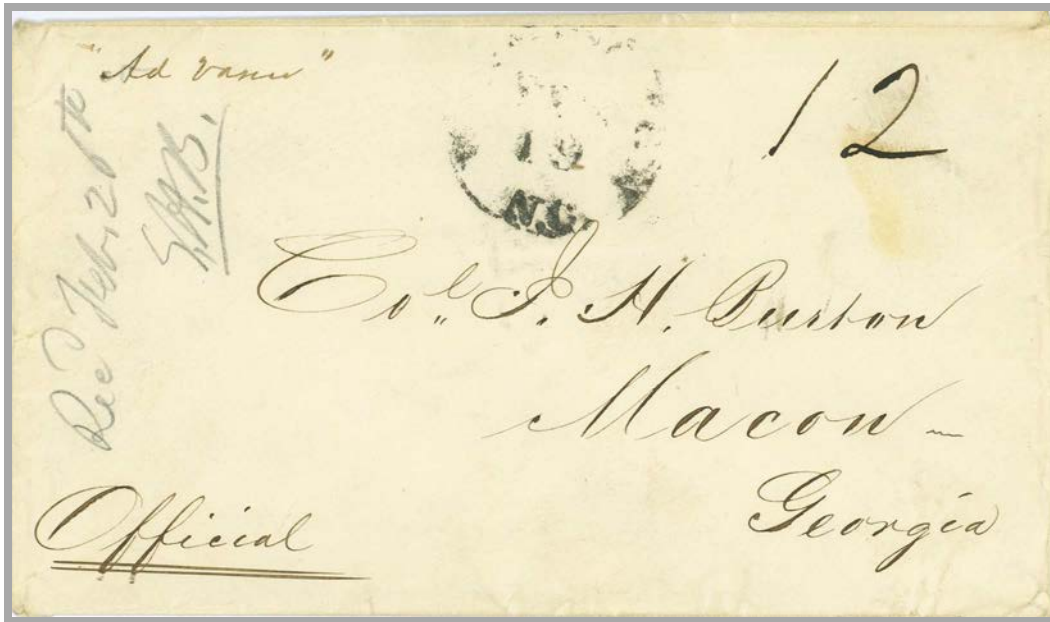 "Ad vance"
12
19
N.C.
Rec'd Feb. 26th
Col. J. H. Burton
Macon —
Georgia
Official